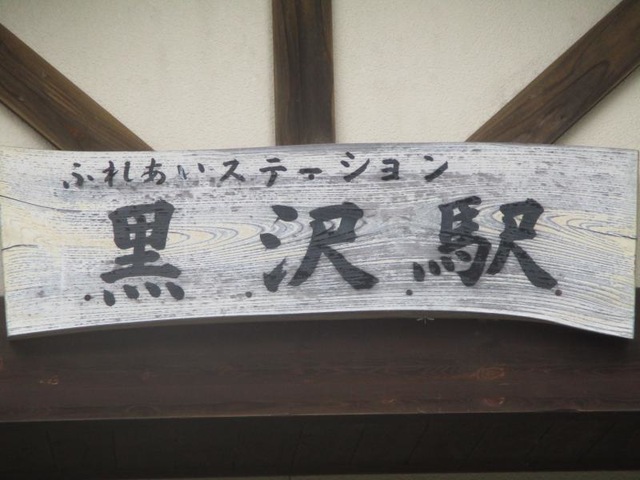 ふれあいステーション
黒沢駅